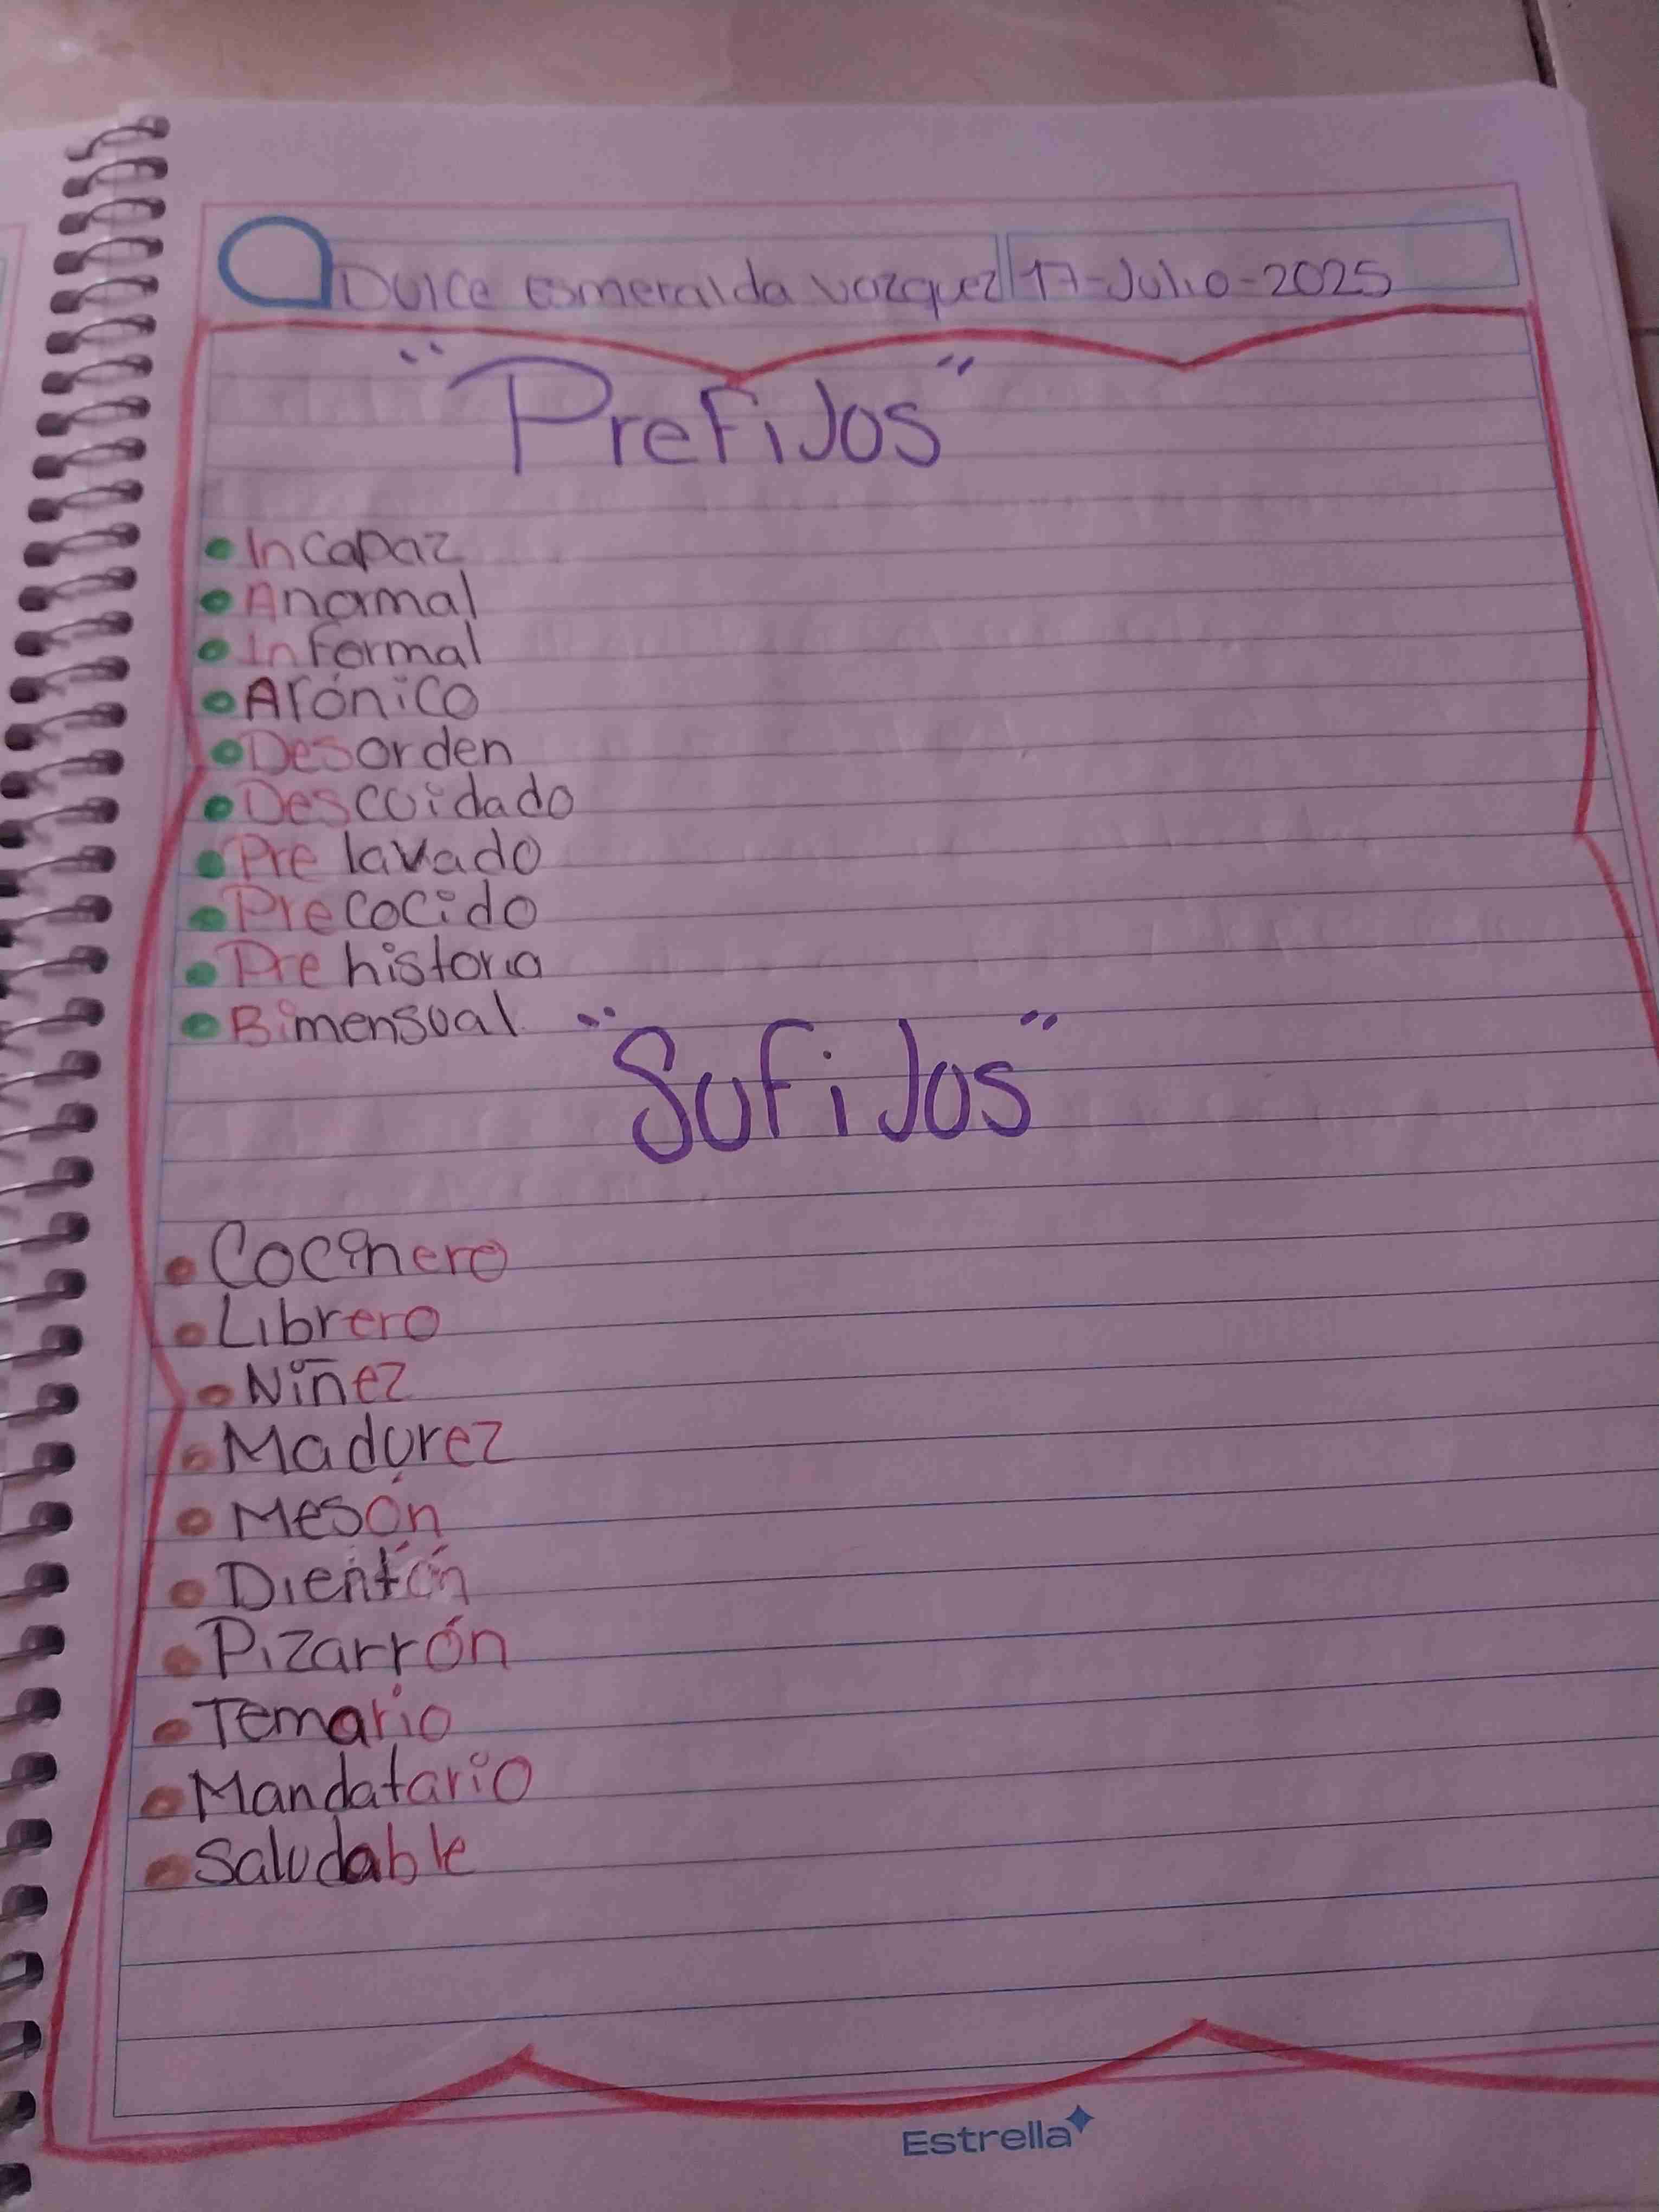 Dulce Esmeralda Vazquez 17-Julio-2025
"Prefijos"
• Incapaz
• Anormal
• Informal
• Arónico
• Desorden
• Descuidado
• Pre lavado
• Precocido
• Pre historia
• Bimensual
"Sufijos"
• Cocinero
• Librero
• Niñez
• Madurez
• Mesón
• Dientón
• Pizarrón
• Temario
• Mandatario
• Saludable
Estrella